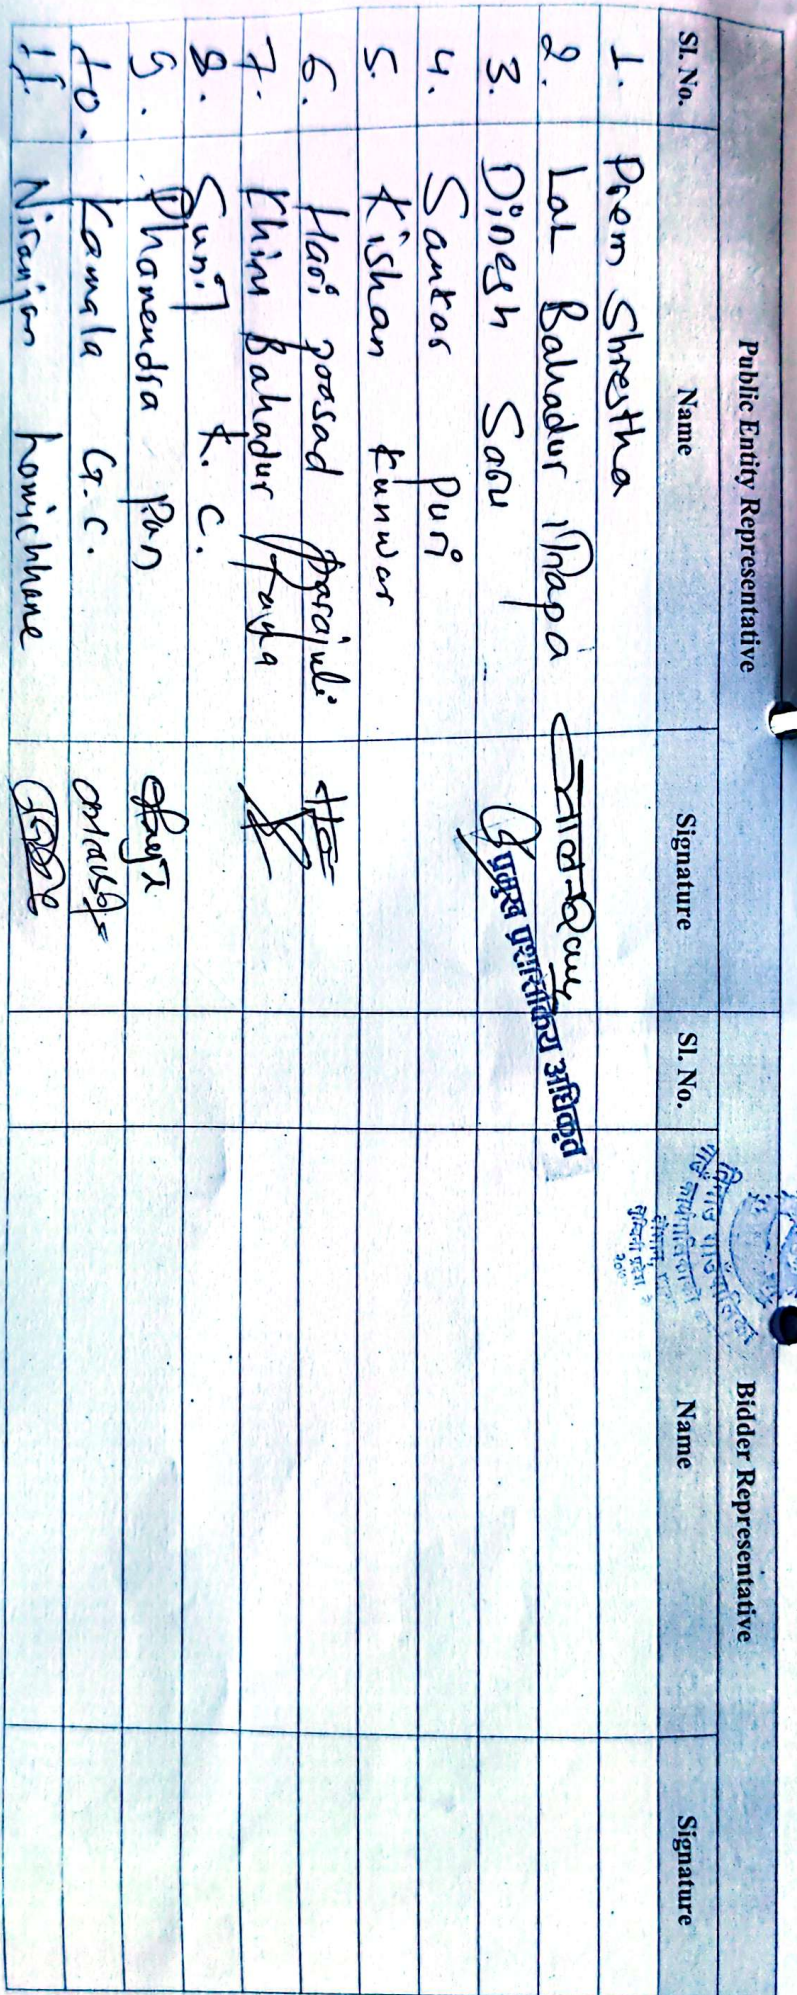 Public Entity Representative Bidder Representative
Sl. No. Name Signature Sl. No. Name Signature
1. Prem Shrestha
2. Lal Bahadur Thapa
3. Dinesh Saru
प्रमुख प्रशासकिय अधिकृत
4. Sankar Puri
5. Kishan Kunwar
6. Hari prasad Parajuli
7. Khim Bahadur
8. Sunil K. C.
9. Dhanendra Pun
10. Kamala G.C.
11. Niranjan Lamichhane